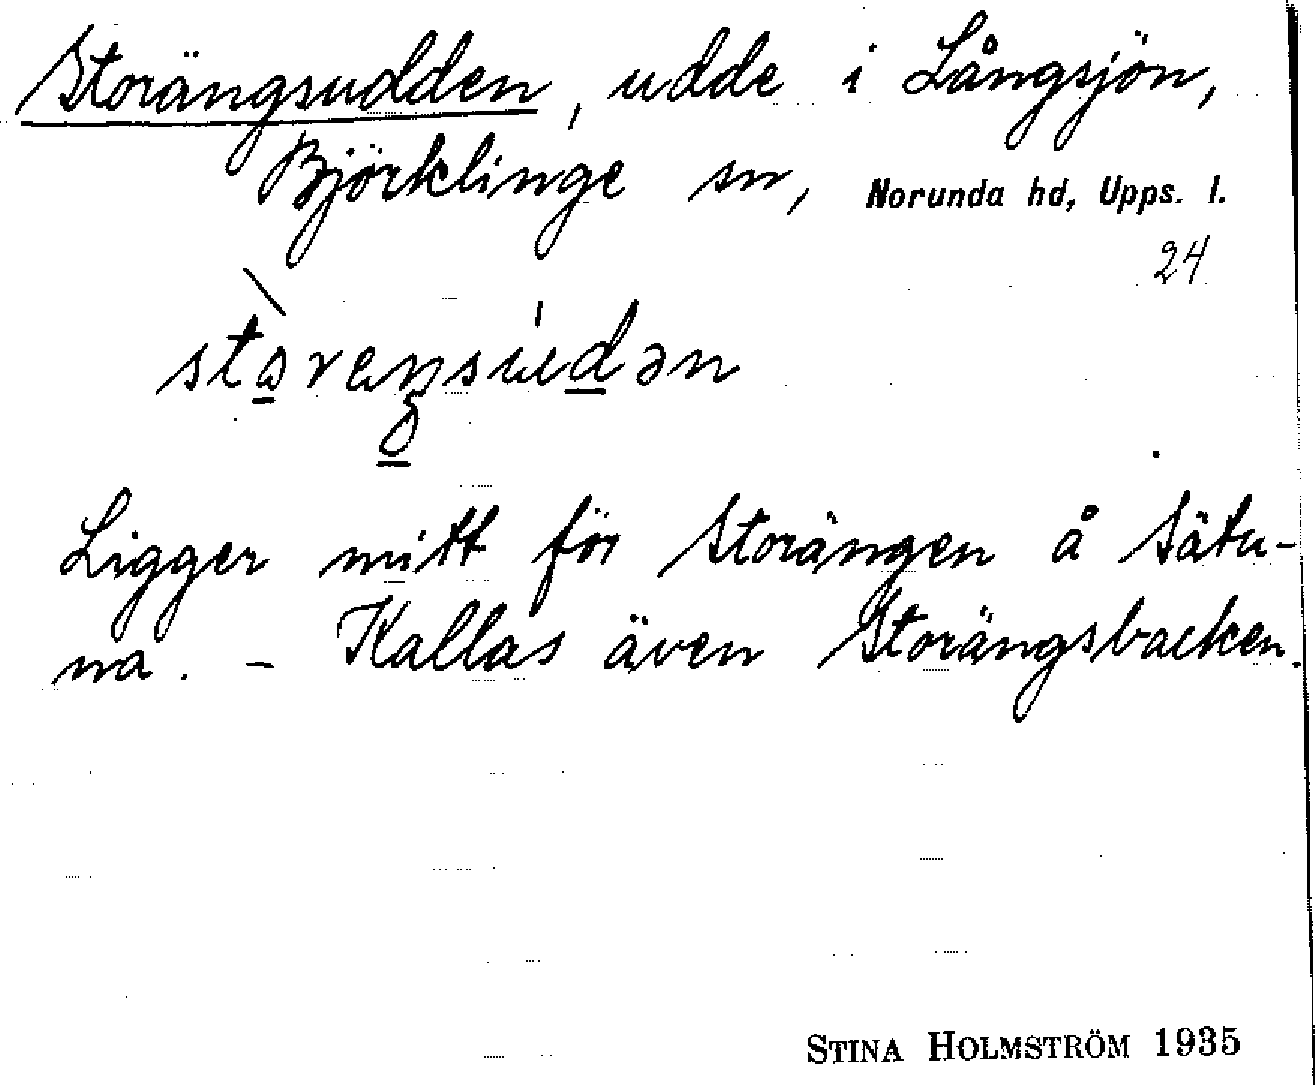 Storängsudden, udde i Långsjön,
Björklinge sn, Norunda hd, Upps. l.
24
Ligger mitt för Storängen å Sätu-
na. - Kallas även Storängsbacken.
STINA HOLMSTRÖM 1935